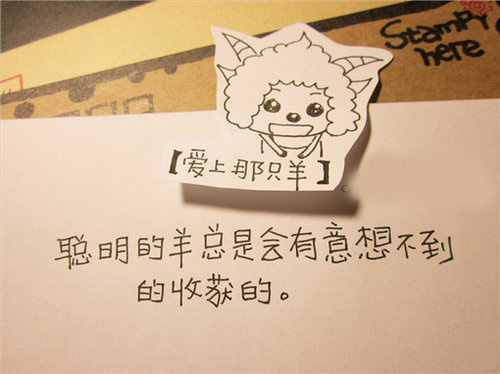 Stamp
here
【爱上那只羊】
聪明的羊总是会有意想不到
的收获的。